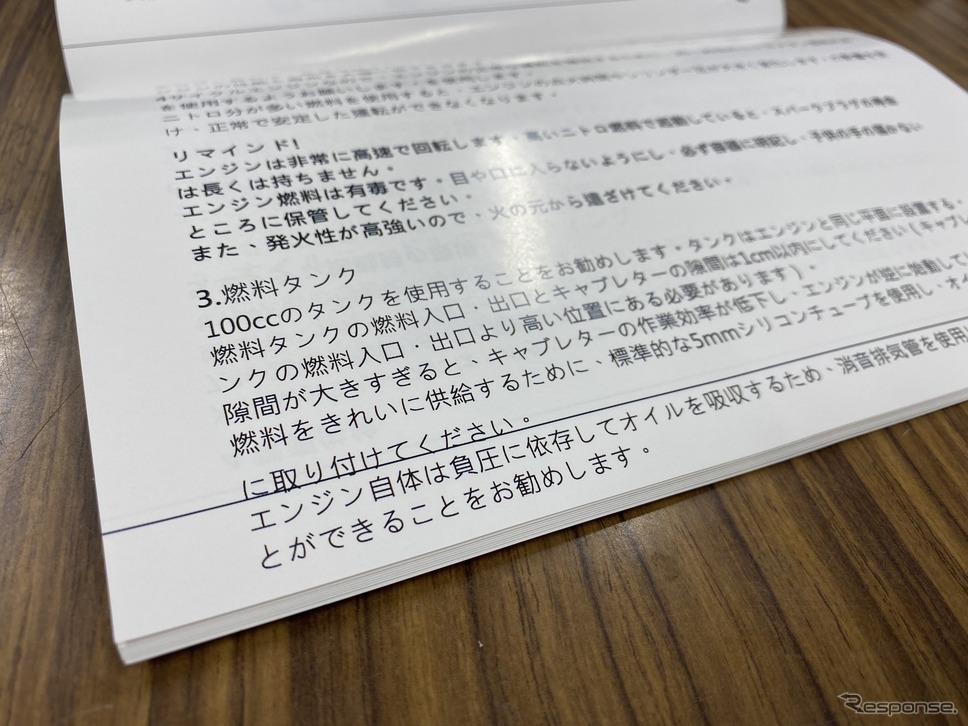 4サイクルエンジン
を使用するようお願いします。を使用します。
ニトロ分が多い燃料を使用すると、エンジンの
け、正常で安定した運転ができなくなります。
リマインド!
エンジンは非常に高速で回転します。高いニトロ燃料で起動していると、スパークプラグの寿命
は長くは持ちません。
エンジン燃料は有毒です。目や口に入らないようにし、必ず容器に明記し、子供の手の届かない
ところに保管してください。
また、発火性が高強いので、火の元から遠ざけてください。
3.燃料タンク
100ccのタンクを使用することをお勧めします。タンクはエンジンと同じ平面に設置する。
燃料タンクの燃料入口・出口とキャブレターの隙間は1cm以内にしてください(キャブレ
ンクの燃料入口・出口より高い位置にある必要があります)。
隙間が大きすぎると、キャブレターの作業効率が低下し、エンジンが逆に始動して
燃料をきれいに供給するために、標準的な5mmシリコンチューブを使用し、オイ
に取り付けてください。
エンジン自体は負圧に依存してオイルを吸収するため、消音排気管を使用
とができることをお勧めします。
Response.